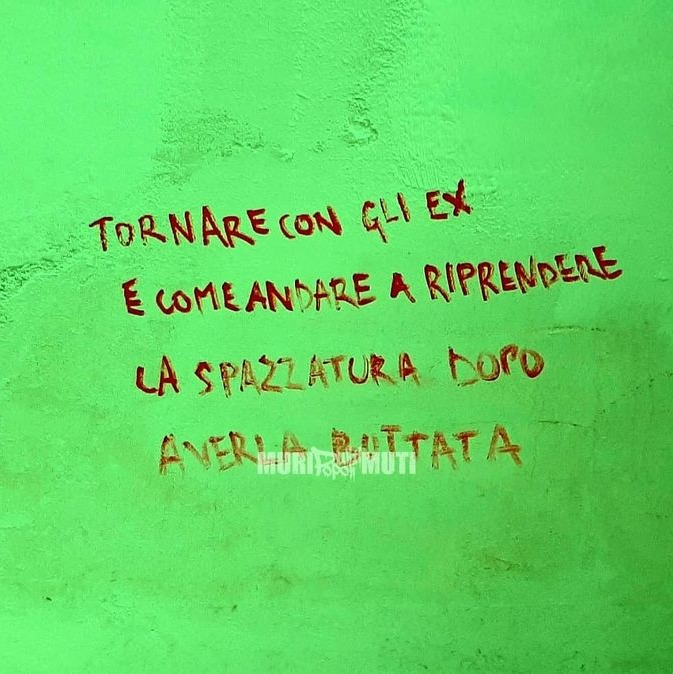 TORNARE CON GLI EX
E COME ANDARE A RIPRENDERE
LA SPAZZATURA DOPO
AVERLA BUTTATA
MURI POPOLI MUTI